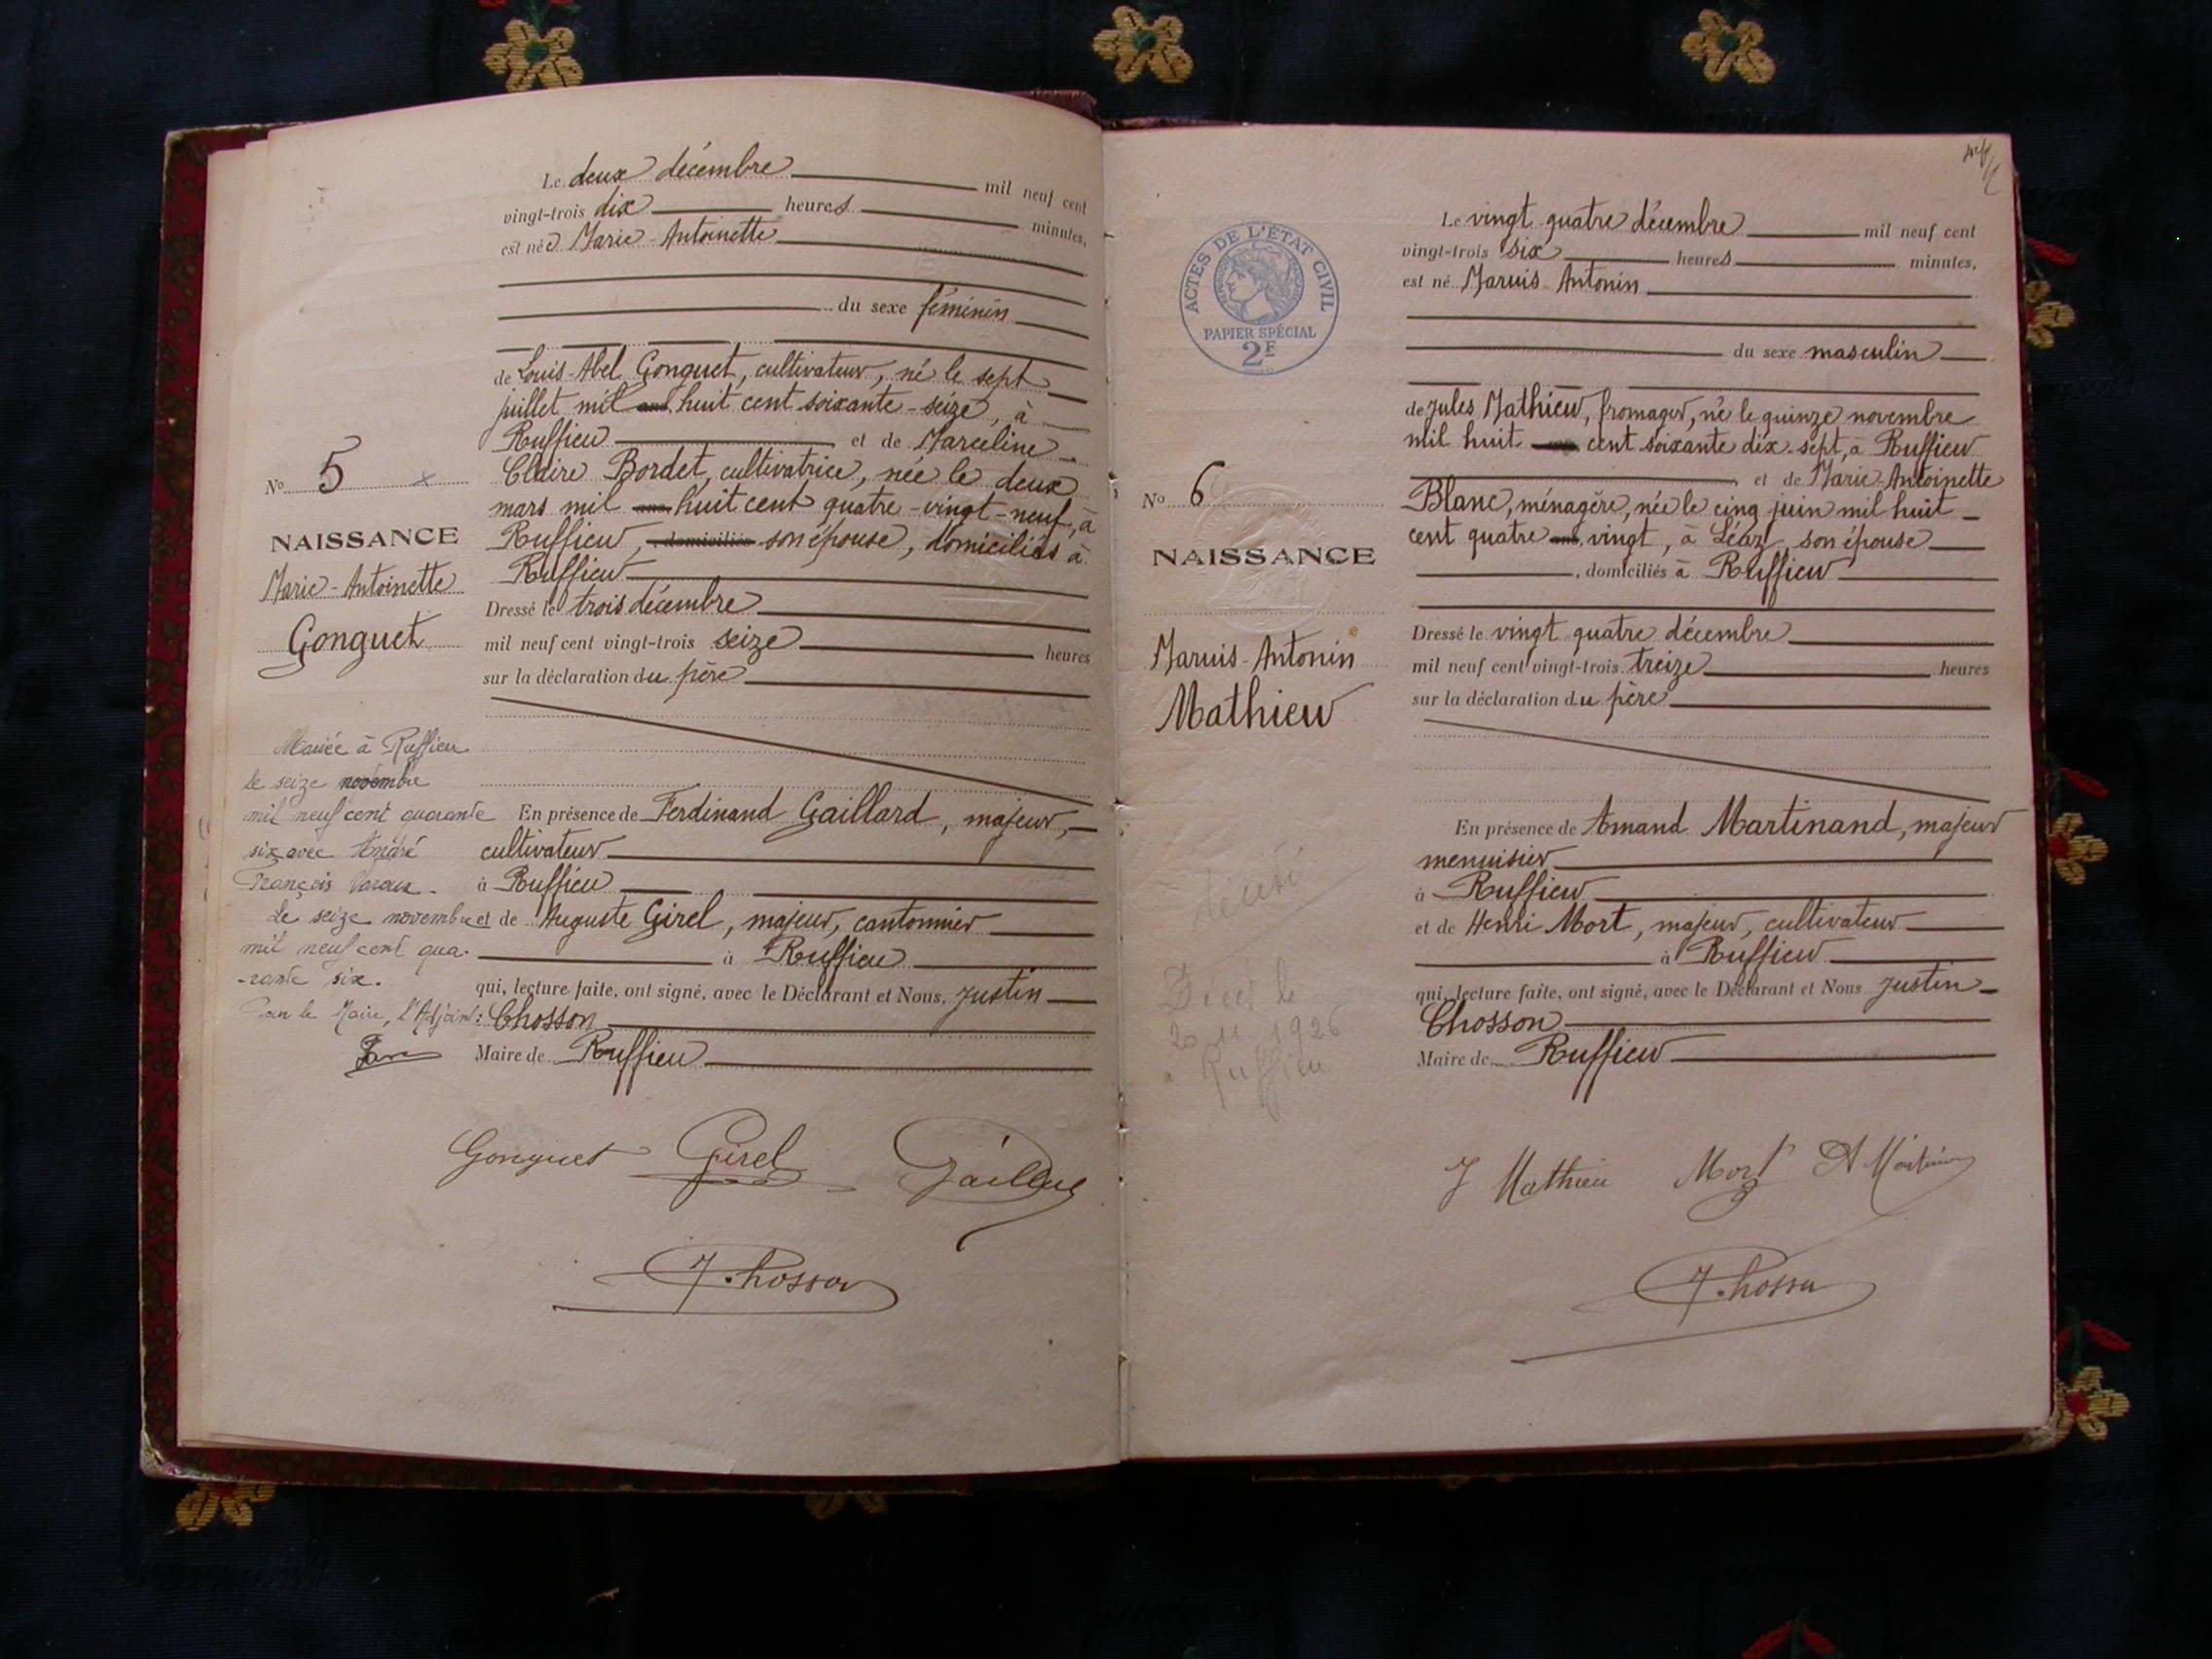 Le deux décembre mil neuf cent
vingt-trois dix heures minutes,
est née Marie-Antoinette
du sexe féminin
de Louis-Abel Gonguet, cultivateur, né le sept
juillet mil huit cent soixante-seize, à
Ruffieu et de Marceline
Claire Bordet, cultivatrice, née le deux
mars mil huit cent quatre-vingt-neuf, à
Ruffieu, domiciliés son épouse, domiciliés à
Ruffieu
Dressé le trois décembre
mil neuf cent vingt-trois seize heures
sur la déclaration du père
En présence de Ferdinand Gaillard, majeur,
cultivateur
à Ruffieu
et de Auguste Girel, majeur, cantonnier
à Ruffieu
qui, lecture faite, ont signé, avec le Déclarant et Nous, Justin
Chosson
Maire de Ruffieu
Gonguet Girel
J. Chosson
No 5
NAISSANCE
Marie-Antoinette
Gonguet
Mariée à Ruffieu
le seize novembre
mil neuf cent quarante
six avec André
François
Le seize novembre
mil neuf cent qua-
-rante six.
Pour le Maire, l'Adjoint:
ACTES DE L'ÉTAT CIVIL
PAPIER SPÉCIAL
2F
No 6
NAISSANCE
Marius-Antonin
Mathieu
Décès le
1926
à Ruffieu
Le vingt quatre décembre mil neuf cent
vingt-trois six heures minutes,
est né Marius-Antonin
du sexe masculin
de Jules Mathieu, fromager, né le quinze novembre
mil huit cent soixante dix-sept, à Ruffieu
et de Marie-Antoinette
Blanc, ménagère, née le cinq juin mil huit
cent quatre vingt, à Léaz, son épouse
, domiciliés à Ruffieu
Dressé le vingt-quatre décembre
mil neuf cent vingt-trois treize heures
sur la déclaration du père
En présence de Amand Martinand, majeur
menuisier
à Ruffieu
et de Henri Mort, majeur, cultivateur
à Ruffieu
qui, lecture faite, ont signé, avec le Déclarant et Nous Justin
Chosson
Maire de Ruffieu
J Mathieu Mort